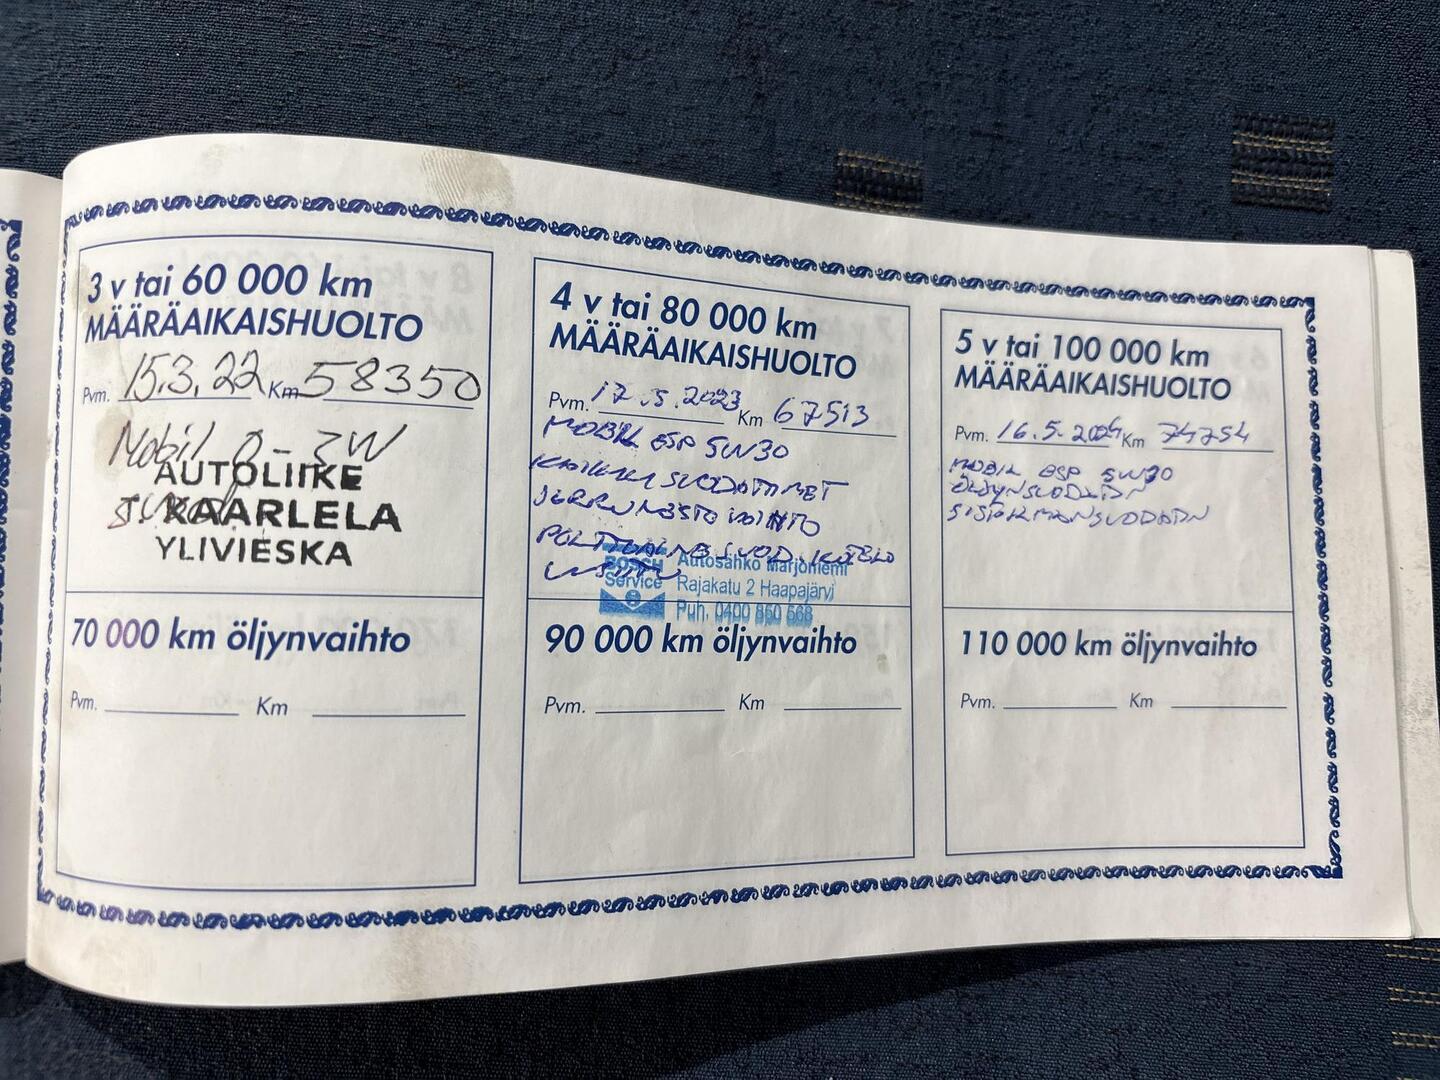 3 v tai 60 000 km
MÄÄRÄAIKAISHUOLTO
Pvm. 15.3.22 Km 58350
Mobil 0-3W
AUTOLIIKE
KAARLELA
YLIVIESKA
70 000 km öljynvaihto
Pvm. Km
4 v tai 80 000 km
MÄÄRÄAIKAISHUOLTO
Pvm. 17.5.2023 Km 67513
MOBIL ESP 5W30
KAIKKI SUODATTIMET
JARRUNESTE VAIHTO
POLTTOAINESUOD. KOTELO
UUSITTU
BOSCH
Service
Autosähkö Marjoniemi
Rajakatu 2 Haapajärvi
Puh. 0400 860 668
90 000 km öljynvaihto
Pvm. Km
5 v tai 100 000 km
MÄÄRÄAIKAISHUOLTO
Pvm. 16.5.2024 Km 74754
MOBIL ESP 5W30
ÖLJYNSUODATIN
SISÄILMANSUODATIN
110 000 km öljynvaihto
Pvm. Km